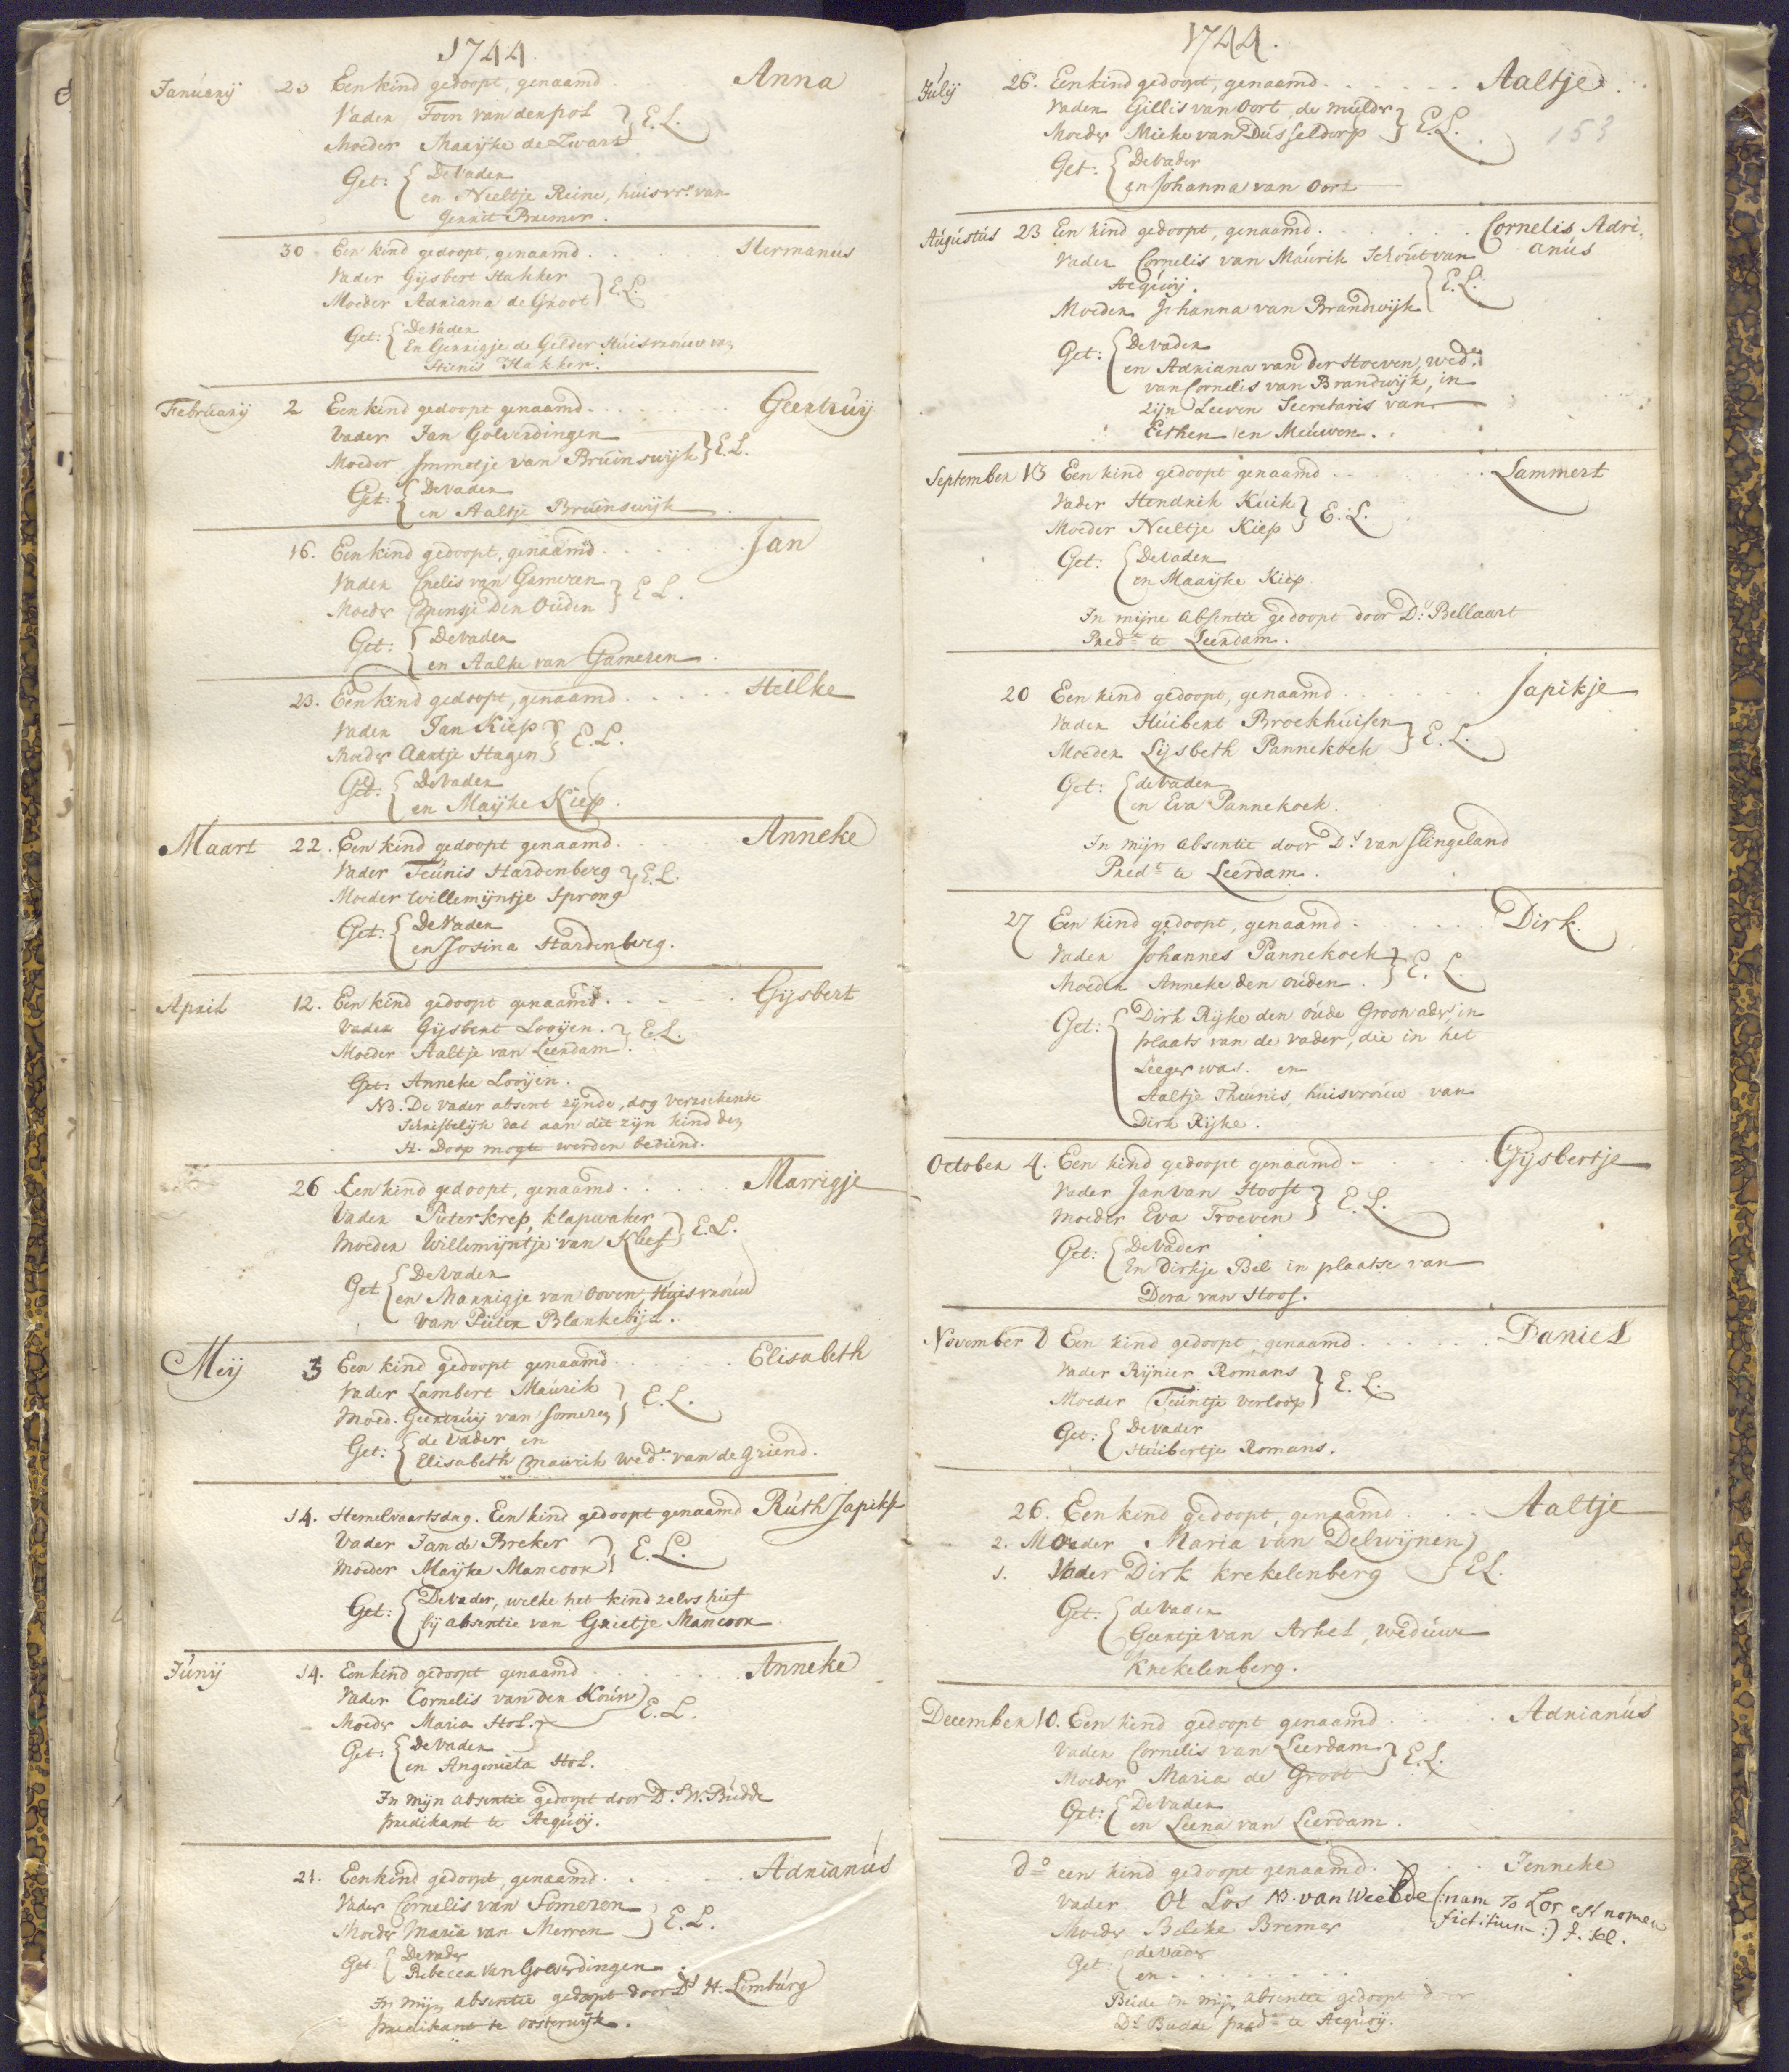 1744.
Januarij 23 Een kind gedoopt, genaamd . . . Anna
Vader Toon van den pol } E.L.
Moeder Maaijke de Zwart
Get: { De Vader
en Neeltje Reine, huisvr. van
Gerrit Bremer.
30 Een kind gedoopt, genaamd . . . . Hermanus
Vader Gijsbert Hakker } E.L.
Moeder Adriana de Groot
Get: { De Vader
En Gerrigje de Gelder Huisvrouw van
Hakker.
Februarij 2 Een kind gedoopt genaamd . . . . . . . Geertruij
Vader Jan Golverdingen
Moeder Immetje van Bruinswijk } E.L.
Get: { De Vader
en Aaltje Bruinswijk
16. Een kind gedoopt, genaamd . . . . . Jan
Vader Cnelis van Gameren } E.L.
Moeder den Ouden
Get: { De Vader
en Aalke van Gameren.
23. Een kind gedoopt, genaamd . . . . . Heilke
Vader Jan Kiep } E.L.
Moeder Aartje Hagen
Get: { De Vader
en Maijke Kiep.
Maart 22. Een kind gedoopt genaamd . . . . Anneke
Vader Teunis Hardenberg } E.L.
Moeder Willemijntje Sprong
Get: { De Vader
en Josina Hardenberg.
April 12. Een kind gedoopt genaamd . . . . . Gijsbert
Vader Gijsbert Looijen. } E.L.
Moeder Aaltje van Leerdam.
Get: Anneke Looijen.
NB. De vader absent zijnde, dog verzoekende
Schriftelijk dat aan dit zijn kind den
H. Doop mogte werden bediend.
26 Een kind gedoopt, genaamd . . . . . Marrigje
Vader Pieter krep, klapwaker
Moeder Willemijntje van Kleef } E.L.
Get { De Vader
en Marrigje van Ooven, Huisvrouw
van Pieter Blankebijl.
Meij 3 Een kind gedoopt genaamd . . . . . . Elisabeth
Vader Lambert Maurik } E.L.
Moed. Geertruij van Someren
Get: { de Vader en
Elisabeth Maurik wed.e van de Griend.
14. Hemelvaartsdag. Een kind gedoopt genaamd Ruth Japikse
Vader Jan de Breker } E.L.
Moeder Maijke Mancoor
Get: { De Vader, welke het kind zelvs hief
bij absentie van Grietje Mancoor.
Junij 14. Een kind gedoopt genaamd . . . . . . . Anneke
Vader Cornelis van den Kouw } E.L.
Moeder Maria Hol.
Get: { De Vader
en Angenieta Hol.
In mijn absentie gedoopt door D.s W. Budde
predikant te Acquoij.
21. Een kind gedoopt, genaamd . . . . . . Adrianus
Vader Cornelis van Someren } E.L.
Moeder Maria van Merren
Get { De vader
Rebecca van Golverdingen.
In mijn absentie gedoopt door Ds H. Limburg
predikant te Oosterwijk.
1744.
Julij 26. Een kind gedoopt, genaamd . . . . . . Aaltje
Vader Gillis van Oort, de mulder } E.L.
Moeder Mieke van Dusseldorp
153
Get: { De vader
en Johanna van Oort
Augustus 23 Een kind gedoopt, genaamd . . . . . . Cornelis Adri-
anus
Vader Cornelis van Maurik Schout van
Acquoij. } E.L.
Moeder Johanna van Brandwijk
Get: { De vader
en Adriana van der Hoeven, wed.e
van Cornelis van Brandwijk, in
zijn Leeven Secretaris van
Eethen en Meuwen.
September 13 Een kind gedoopt genaamd . . . . . Lammert
Vader Hendrik Kuik } E.L.
Moeder Neeltje Kiep
Get: { De Vader
en Maaijke Kiep.
In mijne absentie gedoopt door D.s Bellaart
Pred.t te Leerdam.
20 Een kind gedoopt, genaamd . . . . . . Japikje
Vader Huibert Broekhuisen } E.L.
Moeder Lijsbeth Pannekoek
Get: { de vader
en Eva Pannekoek.
In mijn absentie door D.s van Slingeland
Pred.t te Leerdam.
27 Een kind gedoopt, genaamd . . . . . . Dirk
Vader Johannes Pannekoek } E.L.
Moeder Anneke den ouden.
Get: { Dirk Rijke den oude Grootvader, in
plaats van de vader, die in het
Leeger was. en
Aaltje Theunis, huisvrouw van
Dirk Rijke.
October 4. Een kind gedoopt genaamd . . . . . . Gijsbertje
Vader Jan van Hooft } E.L.
Moeder Eva Troeven
Get: { De vader
En Dirkje Bel in plaatse van
Dera van Hoof.
November 8 Een kind gedoopt, genaamd . . . . . . Daniel
Vader Rijnier Romans } E.L.
Moeder Teuntje Verloop
Get: { De vader
Huibertje Romans.
26. Een kind gedoopt, genaamd . . . Aaltje
2. Moeder Maria van Delwijnen } E.L.
1. Vader Dirk krekelenberg
Get: { de Vader
Geertje van Arkel, weduwe
Krekelenberg.
December 10. Een kind gedoopt genaamd . . . . . Adrianus
Vader Cornelis van Leerdam } E.L.
Moeder Maria de Groot
Get: { De Vader
en Leena van Leerdam.
do een kind gedoopt genaamd . . . . Jenneke
Vader Ot Los NB. van Weelde (: nam To Los est nomen
fictitium :)
Moeder Beleke Bremer
Get: { de vader
en . . . . . . . .
Beide in mijn absentie gedoopt door
Ds Budde pred.t te Acquoij.